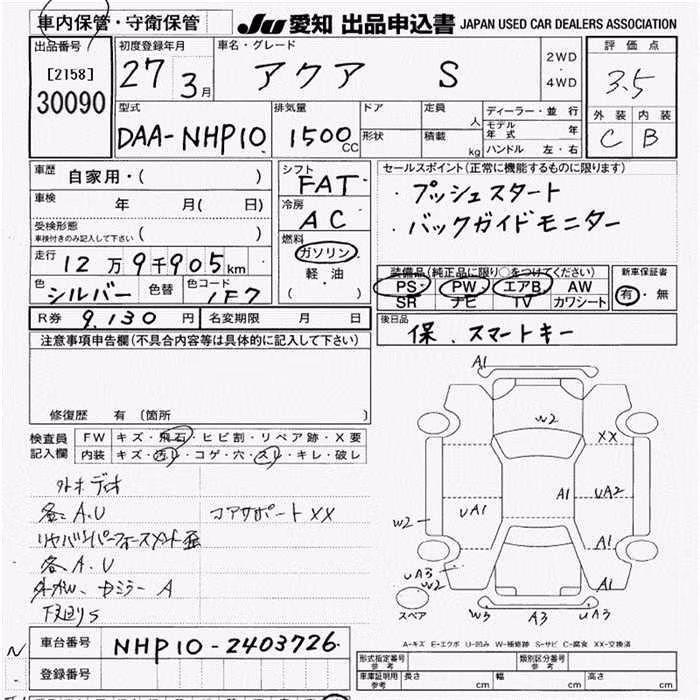 車内保管・守衛保管
JU 愛知 出品申込書 JAPAN USED CAR DEALERS ASSOCIATION
出品番号
[2158]
30090
初度登録年月
27 3月
車名・グレード
アクア S
2WD
・
4WD
評価点
3.5
外装 内装
C B
型式
DAA-NHP10
排気量
1500 CC
ドア
形状
定員 人
積載 kg
ディーラー・並行
モデル年式 年
ハンドル 左・右
車歴 自家用・( )
車検 年 月( 日)
受検形態
車検付きのみ記入して下さい ( )
走行 12万9千905km
色 シルバー 色替 色コード 1F7
シフト
FAT
冷房
AC
燃料
ガソリン
軽・油
( )
セールスポイント(正常に機能するものに限ります)
・プッシュスタート
・バックガイドモニター
装備品(純正品に限り○をつけてください)
PS PW エアB AW
SR ナビ TV カワシート
新車保証書
有・無
R券 9,130 円 名変期限 月 日
後日品
保、スマートキー
注意事項申告欄(不具合内容等は具体的に記入して下さい)
修復歴 有 (箇所 )
検査員記入欄
FW キズ・飛石・ヒビ割・リペア跡・X要
内装 キズ・汚レ・コゲ・穴・スレ・キレ・破レ
外オーディオ
各A.U コアサポートXX
リヤバンパーフォースメント歪
各A.U
ドミラーA
下廻りS
A1
W2
XX
A1
UA2
UA1
W2
A1
UA3
W2
A1
スペア
W3 A3 UA3
A-キズ E-エクボ U-凹み W-補修跡 S-サビ C-腐食 XX-交換済
車台番号 NHP10-2403726
登録番号
形式指定番号 参考
類別区分番号 参考
車庫証明用参考 長さ cm 幅 cm 高さ cm
N